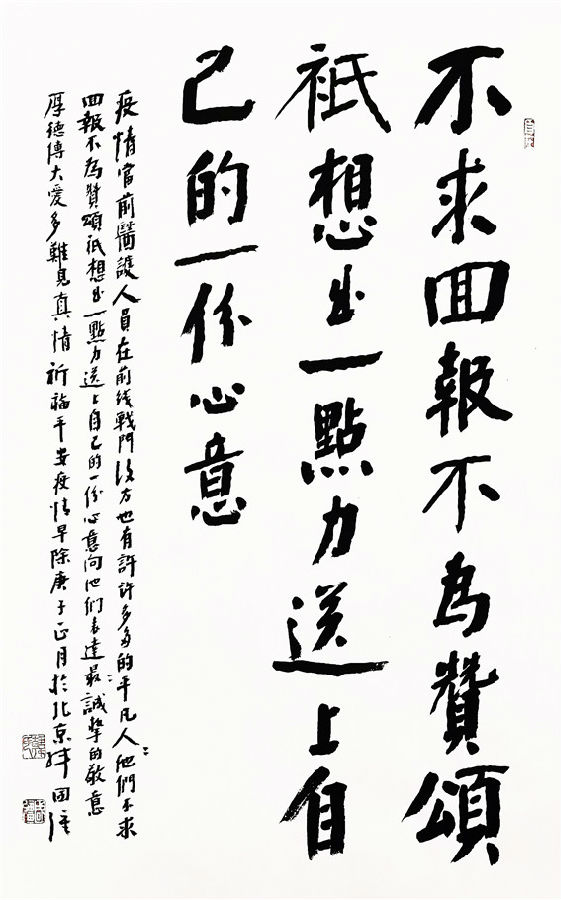 不求回報不為贊頌
祇想出一點力送上自
己的一份心意
疫情當前醫護人員在前线戰鬥後方也有許許多多的平凡人他們不求
回報不為贊頌祇想出一點力送上自己的一份心意向他们表達最誠摯的敬意
厚德傳大愛多難見真情祈福平安疫情早除庚子正月於北京